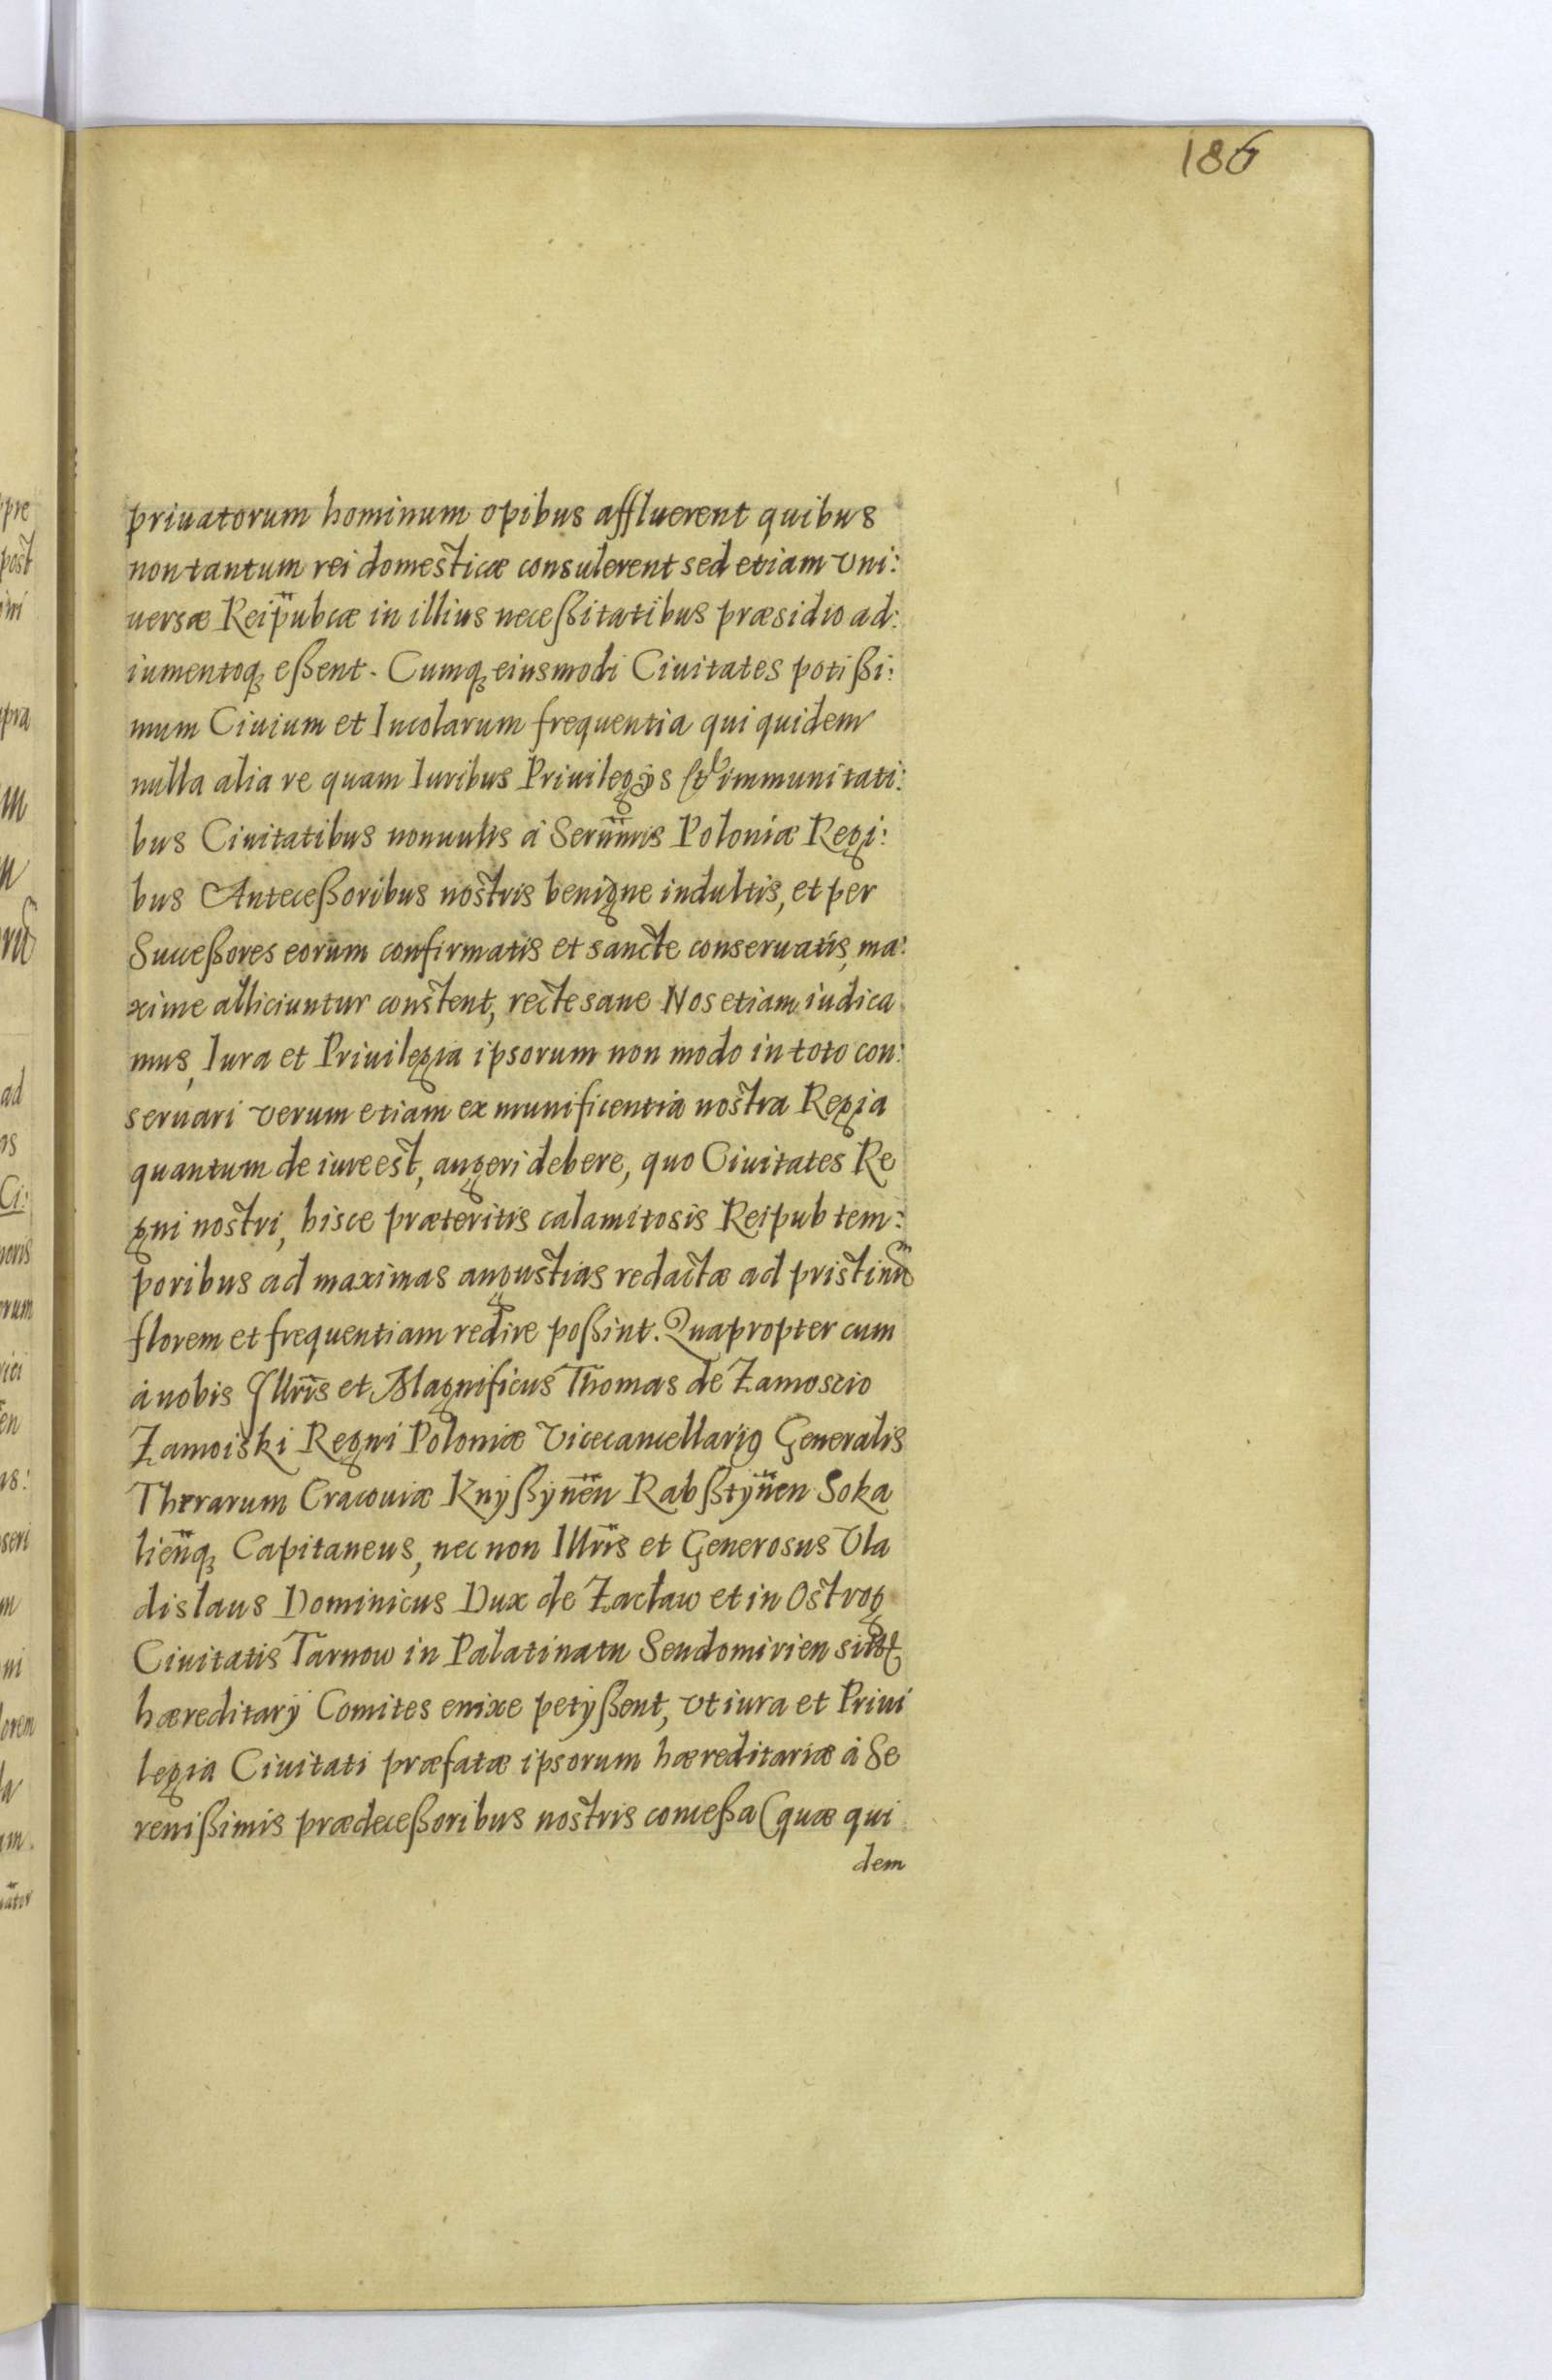 186
priuatorum hominum opibus affluerent quibus
non tantum rei domesticæ consulerent sed etiam vni:
uersæ Reipubcæ in illius neceßitatibus præsidio ad:
iumentoq₃ eßent. Cumq₃ eiusmodi Ciuitates potißi:
mum Ciuium et Incolarum frequentia qui quidem
nulla alia re quam Iuribus Priuilegijs et immunitati:
bus Ciuitatibus nonnulis à Sermis Poloniæ Regi:
bus Anteceßoribus nostris benigne indultis, et per
Succeßores eorum confirmatis et sancte conseruatis, ma:
xime alliciuntur constent, recte sane Nos etiam iudica
mus, Iura et Priuilegia ipsorum non modo in toto con:
seruari verum etiam ex munificentia nostra Regia
quantum de iure est, augeri debere, quo Ciuitates Re
gni nostri, hisce præteritis calamitosis Reipub tem:
poribus ad maximas angustias redactæ ad pristinū
florem et frequentiam redire poßint. Quapropter cum
à nobis Illris et Magnificus Thomas de Zamoscio
Zamoiski Regni Poloniæ Vicecancellariꝰ Generalis
Therarum Cracouiæ Knyßÿnen̄ Rabßtÿnen Soka
lien̄q₃ Capitaneus, nec non Illris et Generosus Vla
dislaus Dominicus Dux de Zacław et in Ostrog
Ciuitatis Tarnow in Palatinatu Sendomirien sitæ
hæreditarÿ Comites enixe petÿßent, vt iura et Priui
legia Ciuitati præfatæ ipsorum hæreditariæ à Se
renißimis prædeceßoribus nostris conceßa (quæ qui
dem